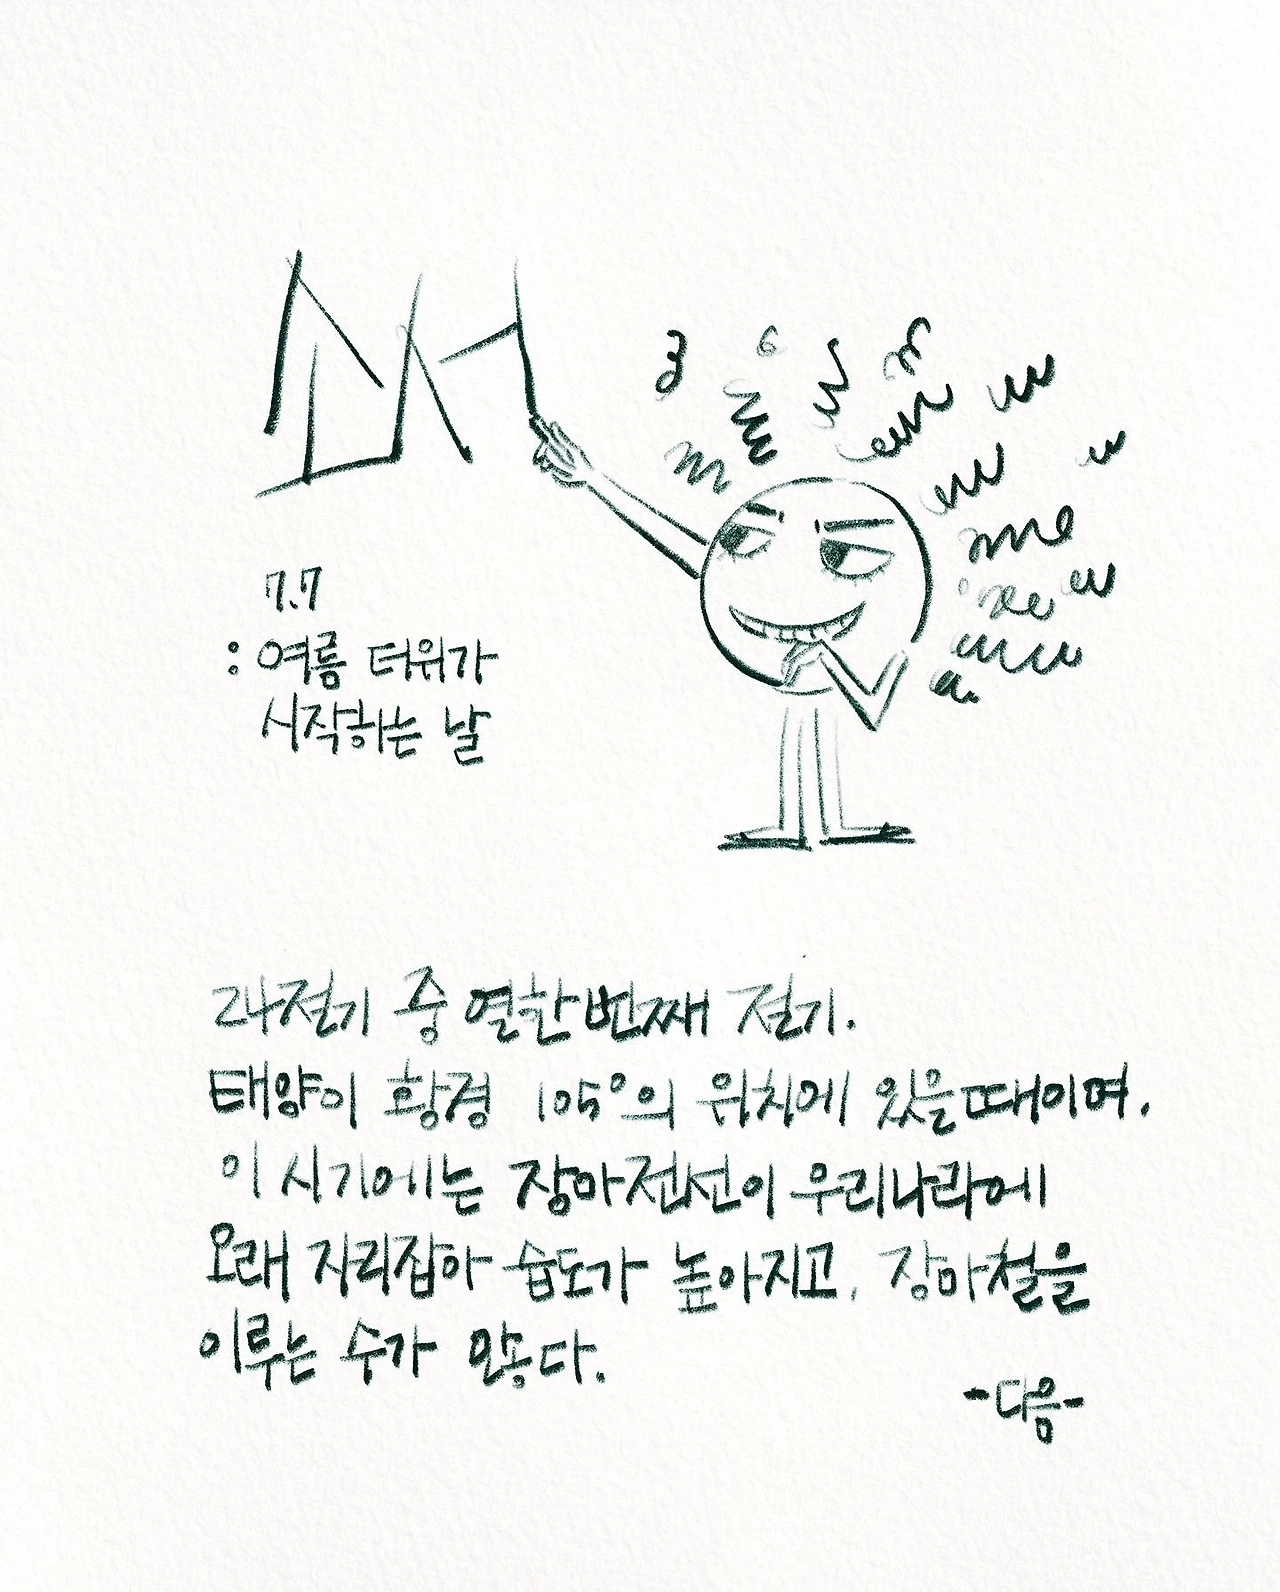 소서
7.7
: 여름 더위가
시작하는 날
24절기 중 열한번째 절기.
태양이 황경 105°의 위치에 있을때이며,
이 시기에는 장마전선이 우리나라에
오래 자리잡아 습도가 높아지고, 장마철을
이루는 수가 많다.
-다음-